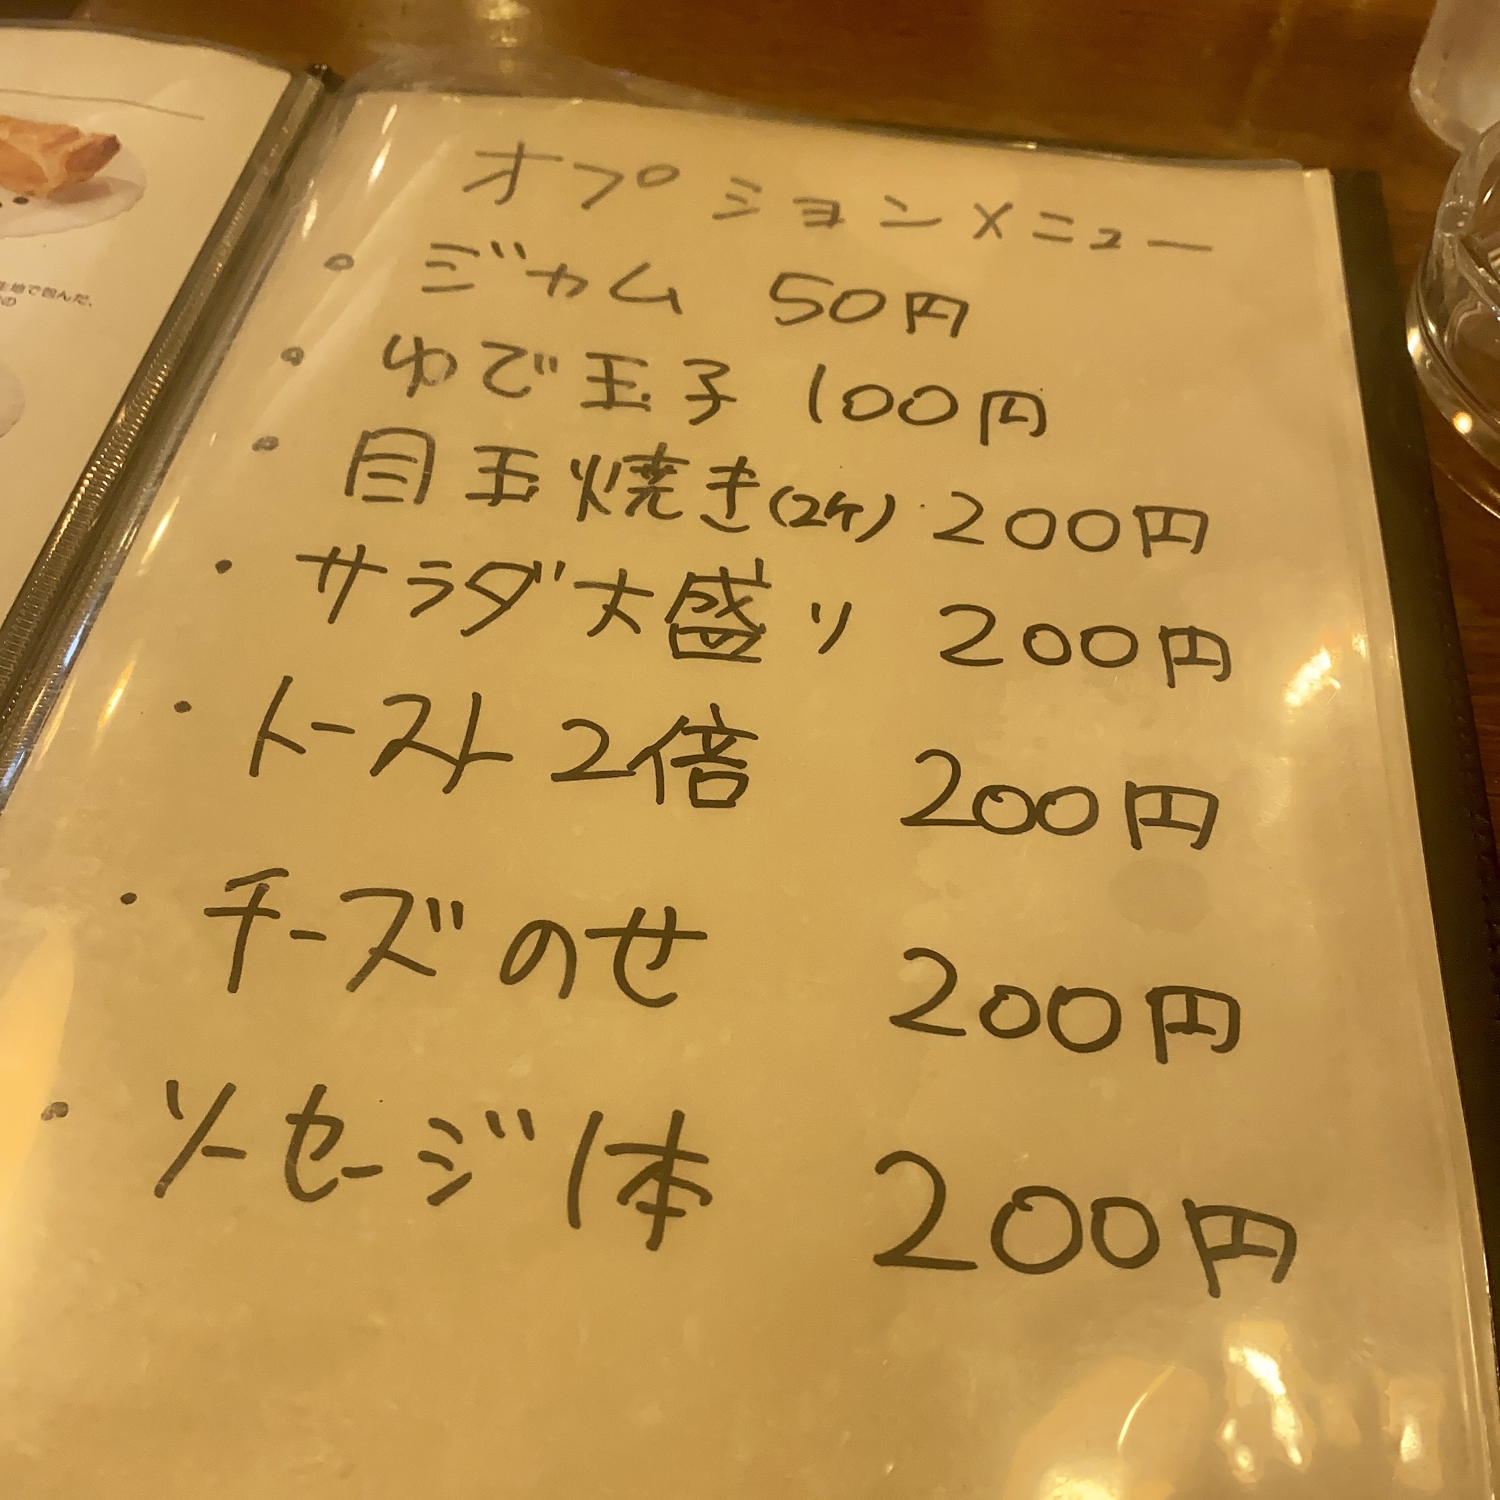 オプションメニュー
・ジャム 50円
・ゆで玉子 100円
・目玉焼き(2ケ) 200円
・サラダ大盛り 200円
・トースト2倍 200円
・チーズのせ 200円
・ソーセージ1本 200円
生地で包んだ、
の